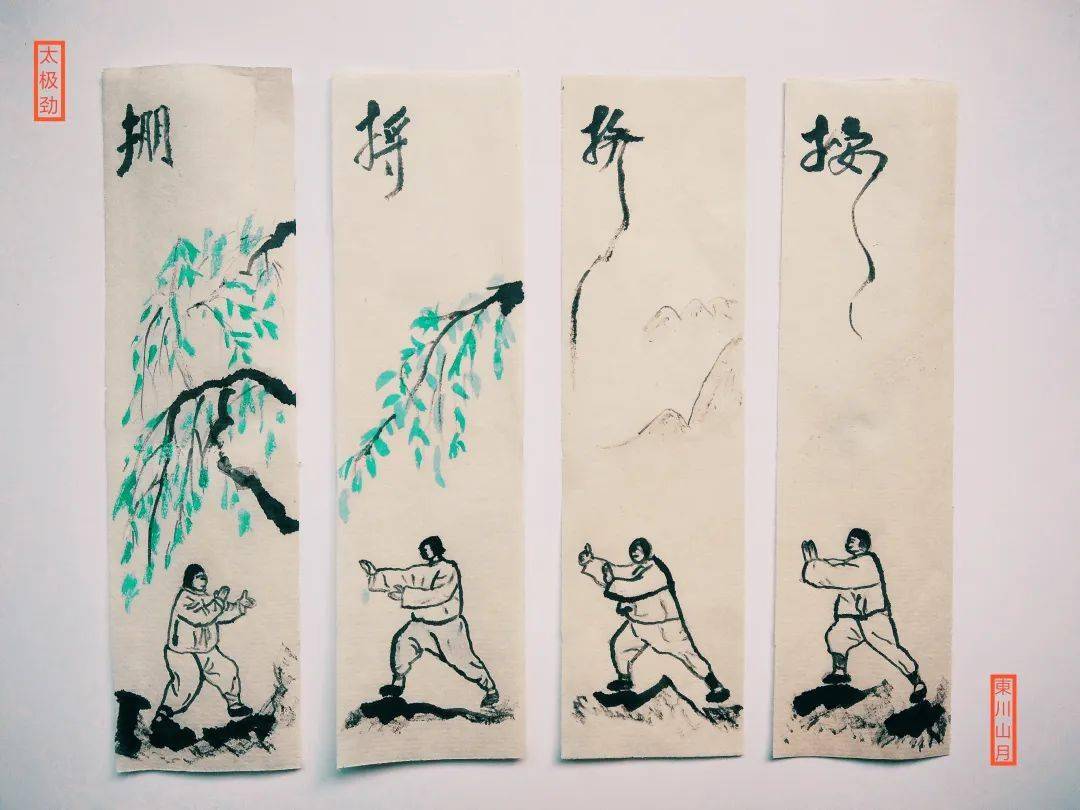 太极劲
掤
捋
挤
按
東川山月